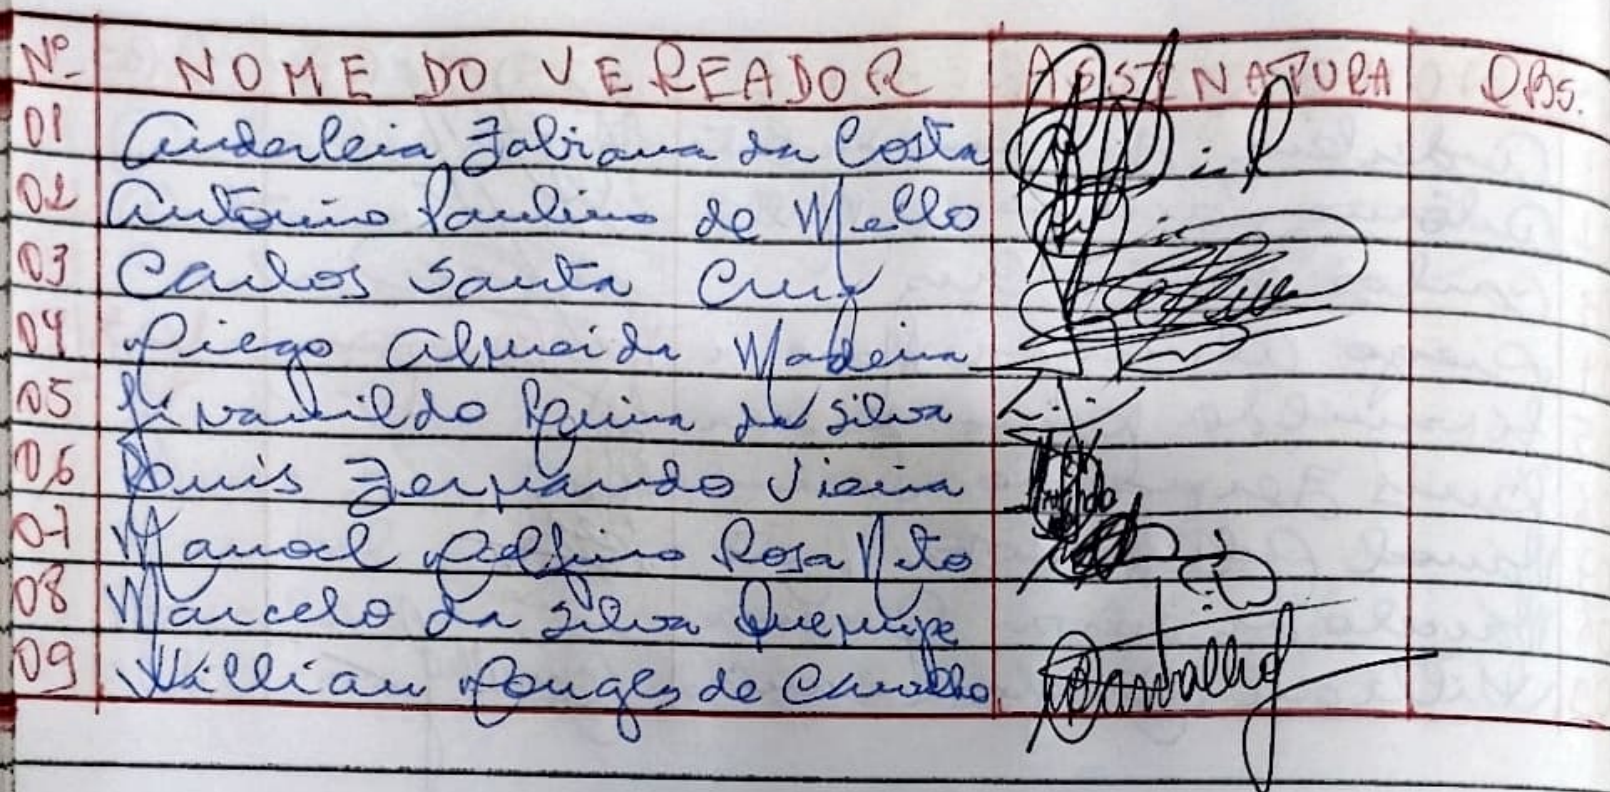 Nº NOME DO VEREADOR ASSINATURA OBS.
01 Anderleia Fabiana da Costa
02 Antonio Paulino de Mello
03 Carlos Santa Cruz
04 Diego Almeida Madeira
05 da Silva
06 Luis Fernando Vieira
07 Manoel Rosa Neto
08 Marcelo da Silva
09 Willian Douglas de Carvalho Carvalho